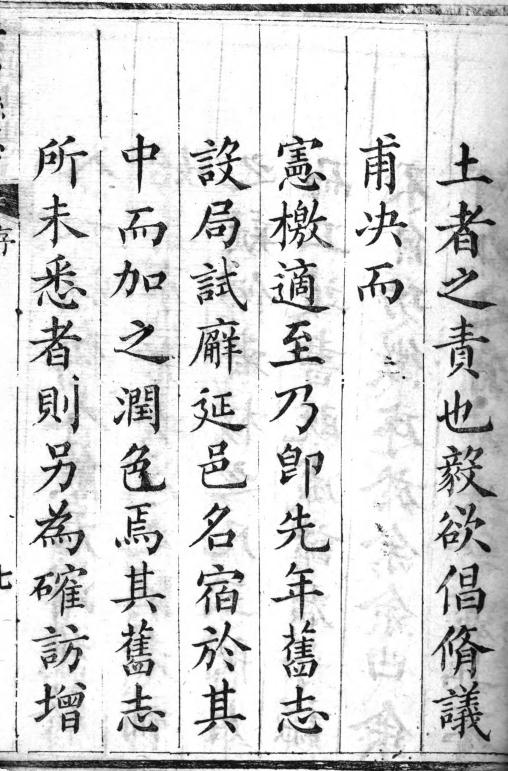 土者之責也毅欲倡脩議
甫决而
憲檄適至乃即先年舊志
設局試廨延邑名宿於其
中而加之潤色焉其舊志
所未悉者則另為確訪增
序
七